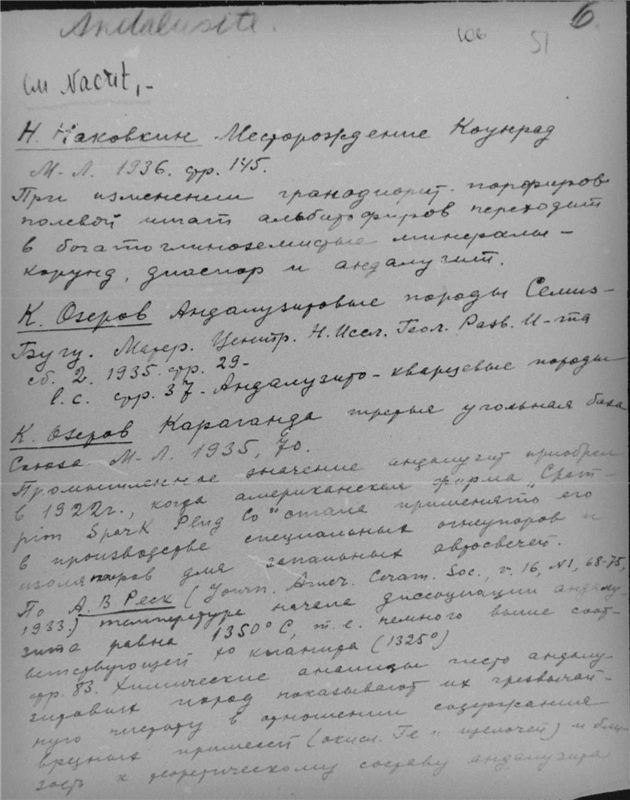 Andalusite.
6.
106
51
см Nacrit,-
Н. Наковкин Месторождение Коунрад
М-Л. 1936. стр. 145.
При изменении гранодиорит-порфиров
полевой шпат альбитофиров переходит
в богатоглиноземистые минералы-
корунд, диаспор и андалузит.
К. Озеров Андалузитовые породы Семиз-
Бугу. Матер. Центр. Н.Иссл. Геол. Разв. И-та
сб. 2. 1935. стр. 29-
l.c. стр. 37-Андалузито-кварцевые породы
К. Озеров Караганда третья угольная база
Союза М-Л. 1935, 70.
Промышленное значение андалузит приобрел
в 1922г., когда американская фирма „Cham-
pion Spark Plug Co" стала применять его
в производстве специальных огнеупоров и
изоляторов для запальных автосвечей.
По А. В Реск (Journ. Amer. Ceram. Soc., v. 16, N1, 68-75,
1933.) температура начала диссоциации андалу-
зита равна 1350°C, т.е. немного выше соот-
ветствующей до кианита (1325°)
стр. 83. Химические анализы чисто андалу-
зитовых пород показывают их чрезвычай-
ную чистоту в отношении содержания
вредных примесей (окисл. Fe и щелочей) и бли-
зость к теоретическому составу андалузита